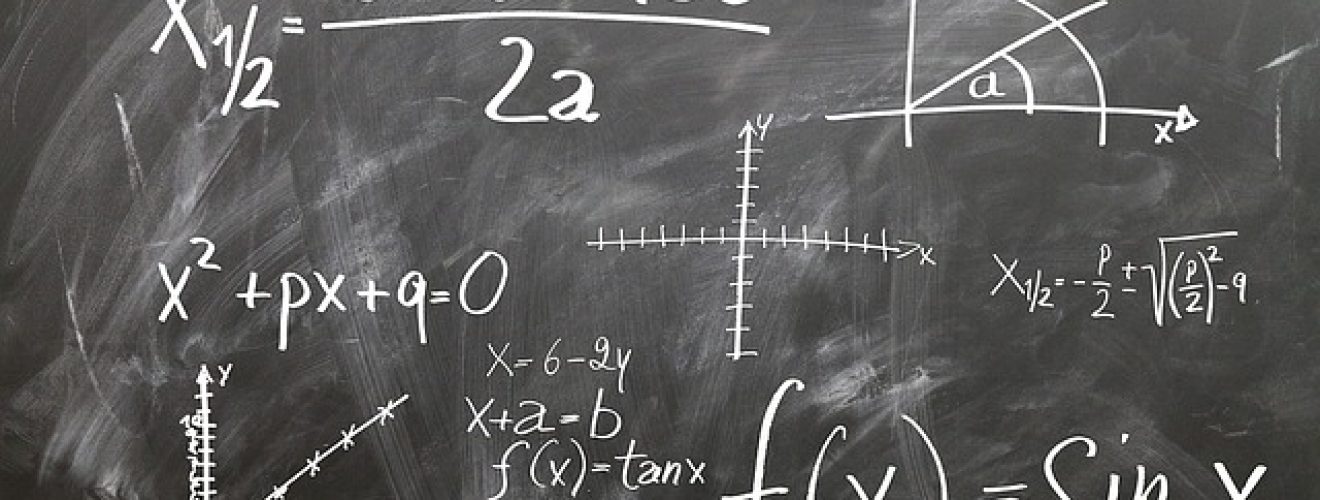 X1/2 = 2a
a
x
y
x
x² + px + q = 0
X1/2 = -p/2 ± √((p/2)² - q
y
x = 6 - 2y
x + a = b
f(x) = tan x
f(x) = Sin x